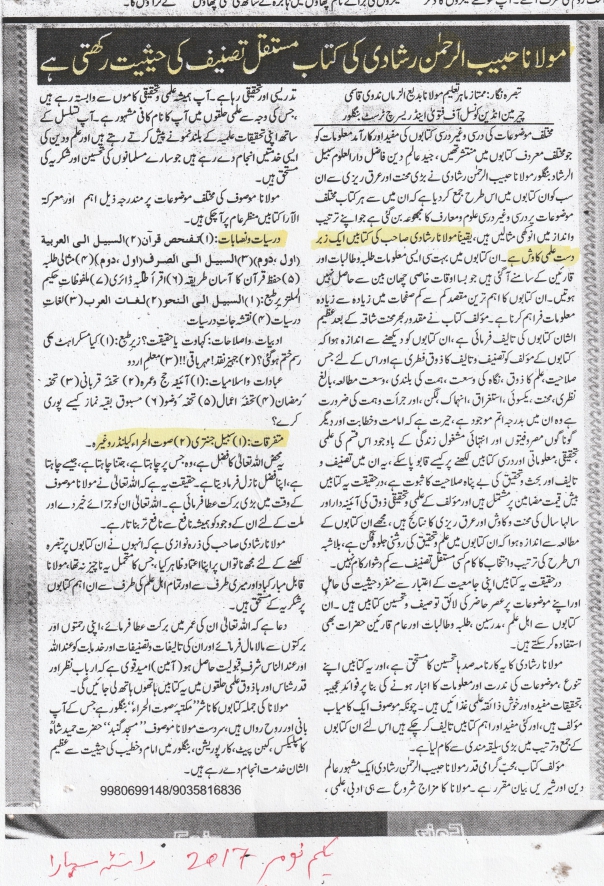 مولانا حبیب الرحمٰن رشادی کی کتاب مستقل تصنیف کی حیثیت رکھتی ہے
تبصرہ نگار: ممتاز ماہر تعلیم مولانا بدیع الزماں ندوی قاسمی
چیرمین انڈین کونسل آف فتویٰ اینڈ ریسرچ ٹرسٹ بنگلور
مختلف موضوعات کی درسی وغیر درسی کتابوں کی مفید اور کارآمد معلومات کو
جو مختلف معروف کتابوں میں منتشر تھیں، جید عالم دین فاضل دارالعلوم سبیل
الرشاد بنگلور مولانا حبیب الرحمٰن رشادی نے بڑی محنت اور عرق ریزی سے ان
سب کو ان کتابوں میں اس طرح جمع کردیا ہے کہ ان میں سے ہر کتاب مختلف
موضوعات پر درسی وغیر درسی علوم ومعارف کا مجموعہ بن گئی ہے جو اپنے ترتیب
وانداز میں انوکھی مثالیں ہیں، یقیناً مولانا رشادی صاحب کی کتابیں ایک زبر
دست علمی کاوش ہے۔ ان کتابوں میں بہت سی ایسی معلومات طلبہ وطالبات اور
قارئین کے سامنے آگئی ہیں جو بسا اوقات خاصی چھان بین سے حاصل نہیں
ہوتیں۔ ان کتابوں کا اہم ترین مقصد کم سے کم صفحات میں زیادہ سے زیادہ
معلومات فراہم کرنا ہے۔ مؤلف کتاب نے مقدور بھر محنت شاقہ کے بعد عظیم
الشان کتابوں کی تالیف فرمائی ہے، ان کتابوں کو دیکھنے سے اندازہ ہوا کہ
کتابوں کے مؤلف کو تصنیف وتالیف کا ذوق فطری ہے اور اس کے لئے جس
صلاحیت، علم کا ذوق، نگاہ کی وسعت، ہمت کی بلندی، وسعت مطالعہ، بالغ
نظری، محنت، یکسوئی، استغراق، انہماک، لگن، اور جرأت وہمت کی ضرورت
ہے وہ ان میں بدرجہ اتم موجود ہے، حیرت ہے کہ امامت وخطابت اور دیگر
گوناگوں مصروفیتوں اور انتہائی مشغول زندگی کے باوجود اس قسم کی علمی
تحقیقی، معلوماتی اور درسی کتابیں لکھنے پر کیسے قابو پاسکے، یہ ان میں تصنیف و
تالیف اور بحث وتحقیق کی بے پناہ صلاحیت کا ثبوت ہے، درحقیقت یہ کتابیں
بیش قیمت مضامین پر مشتمل ہیں اور مؤلف کے علمی وتحقیقی ذوق کی آئینہ دار اور
سالہا سال کی محنت وکاوش اور عرق ریزی کا نتائج ہیں، مجھے ان کتابوں کے
مطالعہ سے اندازہ ہوا کہ ان کتابوں میں علم وتحقیق کی روشنی جلوہ فگن ہے، بلاشبہ
اس طرح کی ترتیب وانتخاب کا کام کسی مستقل تصنیف سے کم دشوار کام نہیں۔
درحقیقت یہ کتابیں اپنی جامعیت کے اعتبار سے منفرد حیثیت کی حامل
اور اپنے موضوعات پر عصر حاضر کی لائق توصیف وتحسین کتابیں ہیں۔ ان
کتابوں سے اہل علم، مدرسین، طلبہ وطالبات اور عام قارئین حضرات بھی
استفادہ کرسکتے ہیں۔
مولانا رشادی کا یہ کارنامہ صدہا تحسین کا مستحق ہے، اور یہ کتابیں اپنے
تنوع، موضوعات کی ندرت اور معلومات کا انبار ہونے کی بنا پر فوائد عجیبہ
، تحقیقات مفیدہ اور خوش ذائقہ علمی غذا میں ہیں۔ چونکہ موصوف ایک کامیاب
مؤلف ہیں، اور کئی مفید اور اہم کتابیں تالیف کرچکے ہیں اس لئے ان کتابوں
کے جمع وترتیب میں بڑی سلیقہ مندی سے کام لیا ہے۔
مؤلف کتاب محب گرامی قدر مولانا حبیب الرحمٰن رشادی ایک مشہور عالم
دین اور شیریں بیان مقرر ہے۔ مولانا کا مزاج شروع سے ہی ادبی، علمی،
تدریسی اور تحقیقی رہا ہے۔ آپ ہمیشہ علمی وتحقیقی کاموں سے وابستہ رہے ہیں
، جس کی وجہ سے علمی حلقوں میں آپ کا نام کافی مشہور ہے۔ آپ تسلسل کے
ساتھ اپنی تحقیقات علمیہ کے بلند نمونے پیش کرتے رہتے ہیں اور علم ودین کی
ایسی خدمتیں انجام دے رہے ہیں جو سارے مسلمانوں کی تحسین اور شکریہ کی
مستحق ہیں۔
مولانا موصوف کی مختلف موضوعات پر مندرجہ ذیل اہم اور معرکۃ
الآراء کتابیں منظر عام پر آچکی ہیں۔
درسیات ونصابات: (۱) تفحص قرآن (۲) السبیل الی العربیۃ
(اول، دوم) (۳) السبیل الی الصرف (اول، دوم) (۴) مثالی طلبہ
(۵) حفظ قرآن کا آسان طریقہ (۶) اقرأ طلبہ ڈائری (۷) ملفوظات حکیم
الملت زیر طبع: (۱) السبیل الی النحو (۲) لغات العرب (۳) لغات
درسیات (۴) نقشہ جات درسیات
ادبیات واصلاحات: کہاوت یا حقیقت؟ زیر طبع: (۱) کیا مسکراہٹ بھی
رسم ختم ہوگئی؟ (۲) جہیز نقد! مہربانی!! (۳) معلم اردو
عبادات واسلامیات: (۱) آئینہ حج وعمرہ (۲) تحفۂ قربانی (۳) تحفۂ
رمضان (۴) تحفۂ اعمال (۵) تحفۂ وضو (۶) مسبوق بقیہ نماز کیسے پوری
کرے؟
متفرقات: (۱) سبیل جنتری (۲) صوت الحراء کیلنڈر وغیرہ۔
یہ محض اللہ تعالیٰ کا فضل ہے، وہ جس پر چاہتا ہے، جتنا چاہتا ہے، جیسے چاہتا
ہے، اپنا فضل نازل فرمادیتا ہے۔ حقیقت یہ ہے کہ اللہ تعالیٰ نے مولانا موصوف
کے وقت میں بڑی برکت عطا فرمائی ہے۔ اللہ تعالیٰ ان کو جزائے خیر دے اور
ملت کے لئے ان کے وجود کو ہمیشہ نافع سے نافع تر بناتا رہے۔
مولانا رشادی صاحب کی ذرہ نوازی ہے کہ انہوں نے ان کتابوں پر تبصرہ
لکھنے کے لئے مجھ ناتواں پر اپنا اعتماد ظاہر کیا، جس کا متحمل یہ ناچیز نہ تھا، مولانا
قابل مبارکباد اور میری طرف سے اور تمام اہل علم کی طرف سے ان اہم کتابوں
پر شکریہ کے مستحق ہیں۔
دعا ہے کہ اللہ تعالیٰ ان کی عمر میں برکت عطا فرمائے، اپنی رحمتوں اور
برکتوں سے مالا مال فرمائے اور ان کی تالیفات وتصنیفات اور خدمات کو عند اللہ
اور عند الناس شرف قبولیت حاصل ہو (آمین) امید قوی ہے کہ ارباب نظر اور
قدر شناس اور باذوق علمی حلقوں میں یہ کتابیں ہاتھوں ہاتھ لی جائیں گی۔
مولانا کی جملہ کتابوں کا ناشر "مکتبہ صوت الحراء" بنگلور ہے جس کے آپ
بانی اور روح رواں ہیں، سردست مولانا موصوف "مسجد گنبد" حضرت حمید شاہؒ
کامپلیکس، کبن پیٹ، کارپوریشن، بنگلور میں امام وخطیب کی حیثیت سے عظیم
الشان خدمت انجام دے رہے ہیں۔
9980699148/9035816836
یکم نومبر 2017 راشٹریہ سہارا